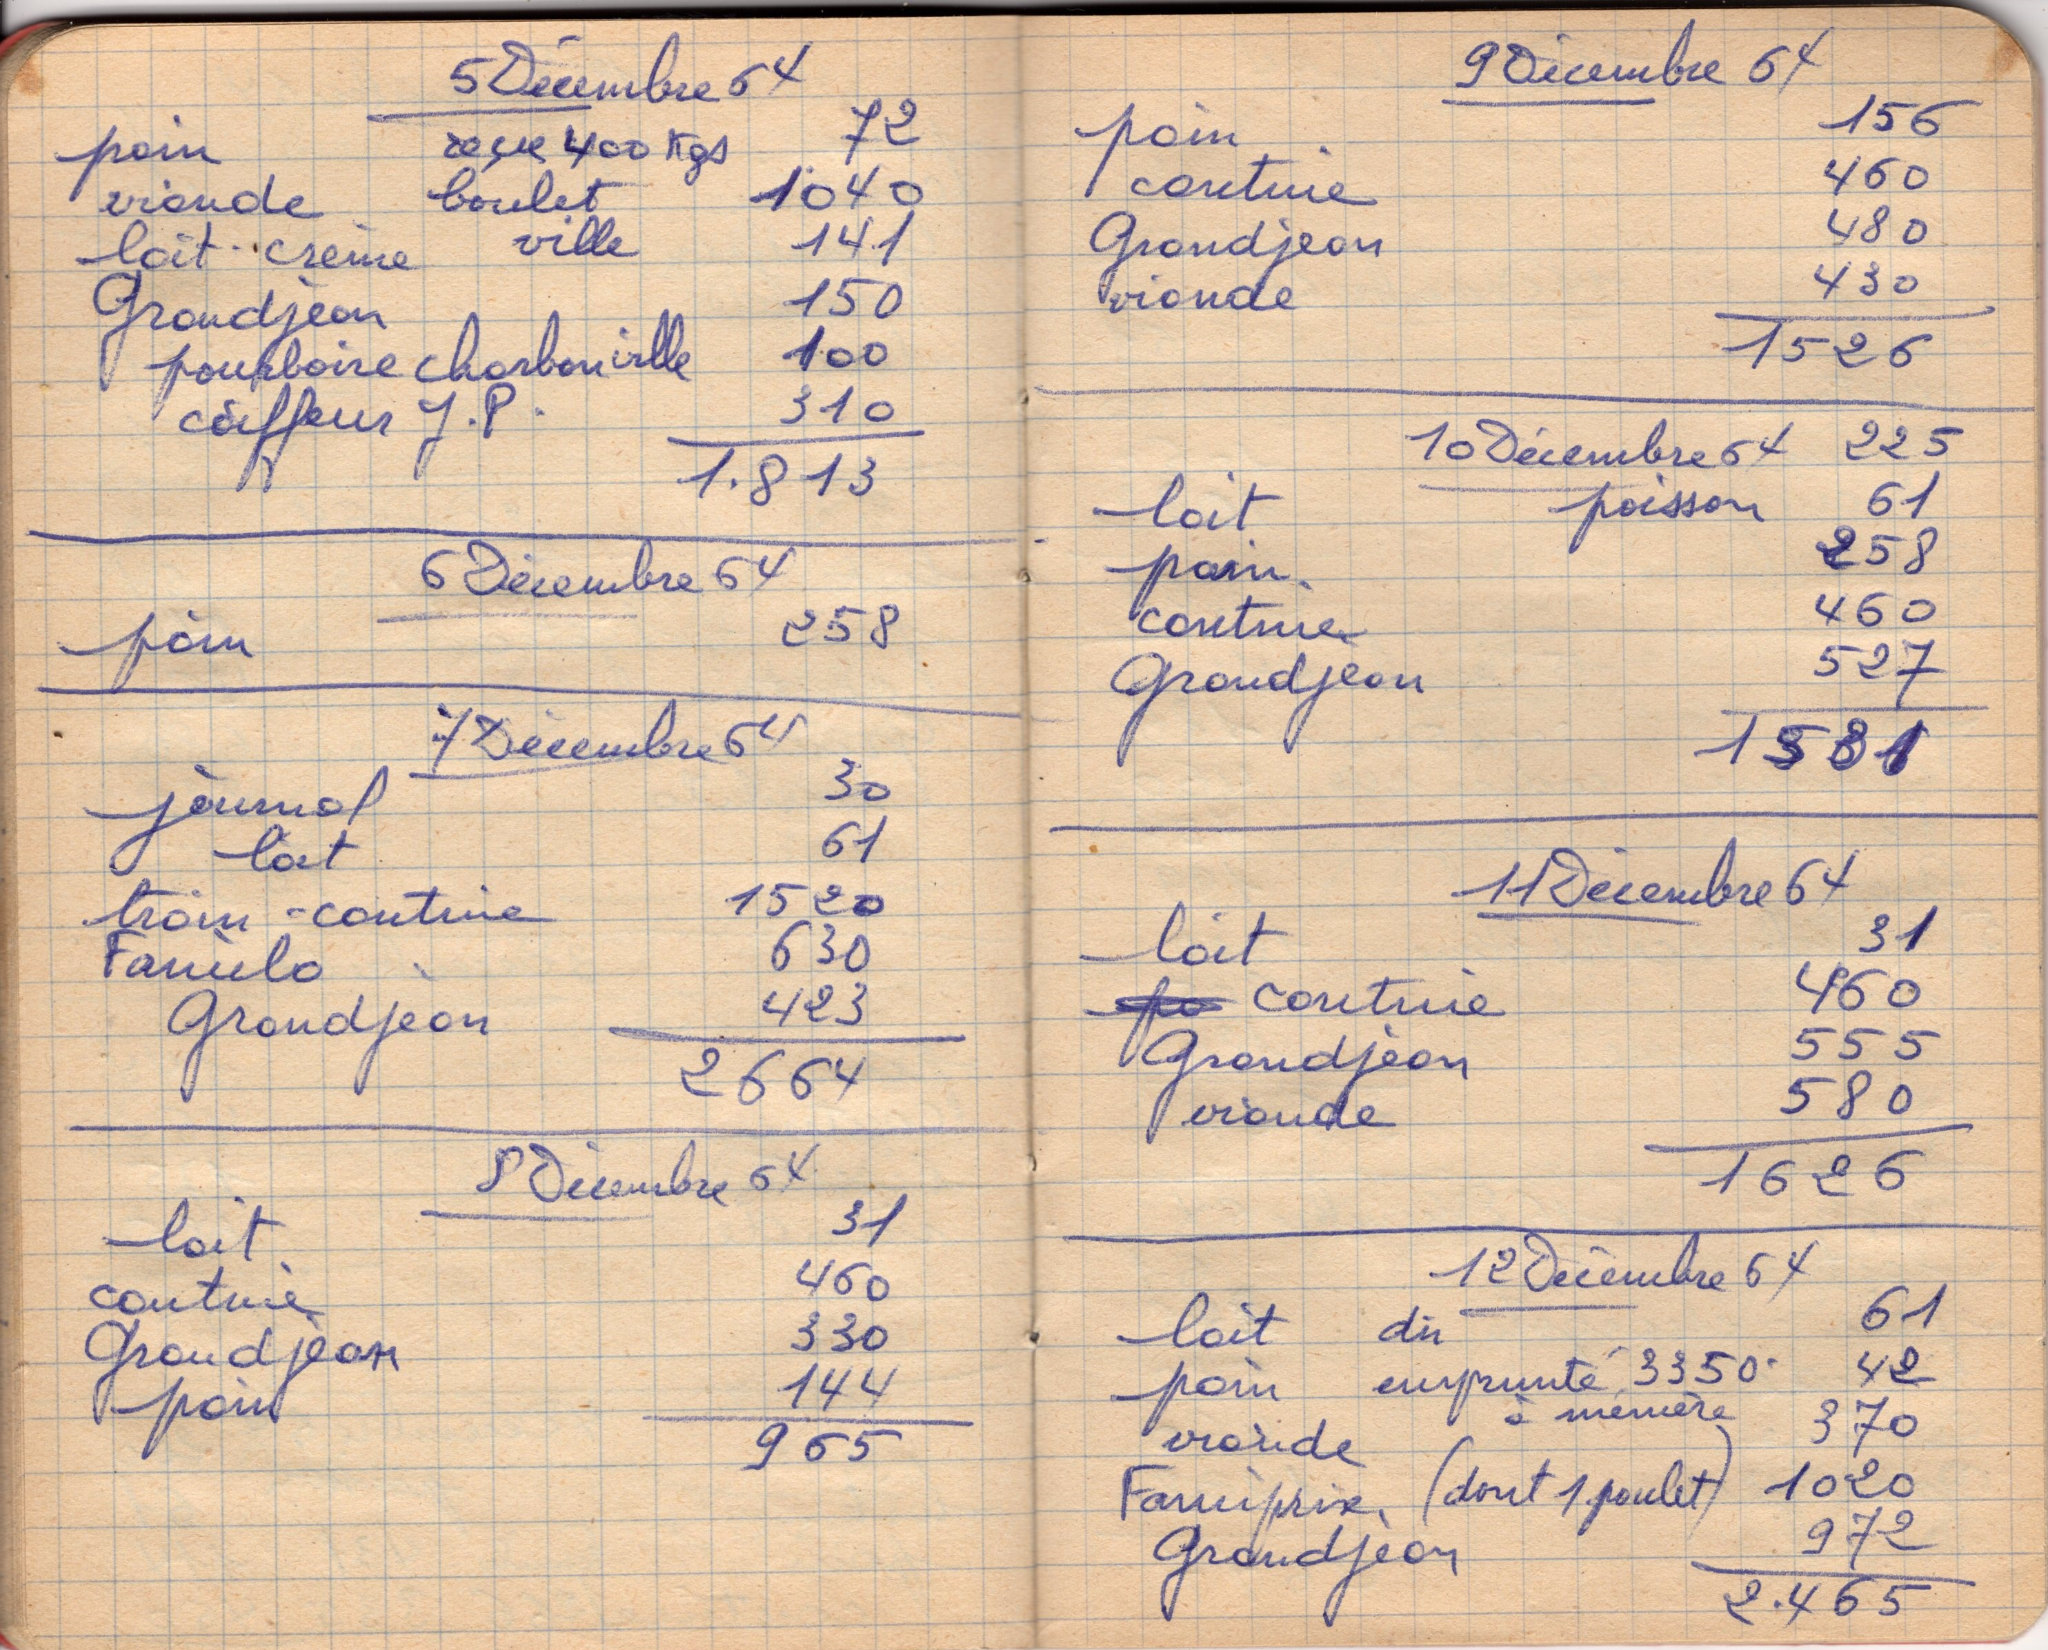 5 Décembre 64
pain reçue 400 Kgs 72
viande boulet 1040
lait - crème ville 141
Grandjean 150
pourboire charbon ville 100
coiffeur J.P. 310
1.813
6 Décembre 64
pain 258
7 Décembre 64
journal 30
lait 61
train - cantine 1520
Familo 630
Grandjean 423
2664
8 Décembre 64
lait 31
cantine 460
Grandjean 330
pain 144
965
9 Décembre 64
pain 156
cantine 460
Grandjean 480
viande 430
1526
10 Décembre 64 225
lait poisson 61
pain 258
cantine 460
Grandjean 527
1531
11 Décembre 64
lait 31
cantine 460
Grandjean 555
viande 580
1626
12 Décembre 64
lait du 61
pain emprunté 3350 42
à mémère
viande 370
Famiprix (dont 1 poulet) 1020
Grandjean 972
2.465